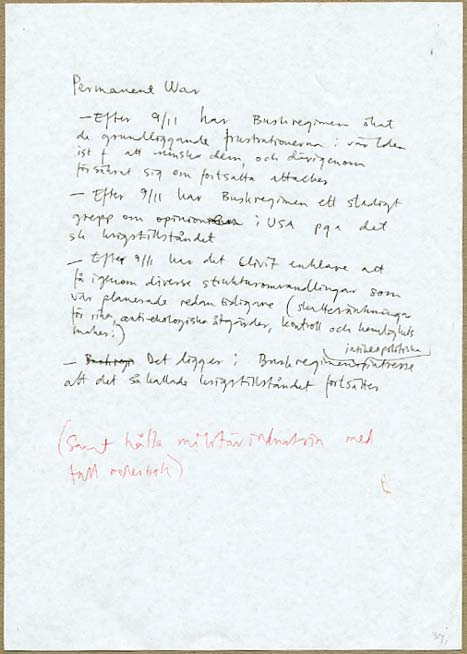 Permanent War
— Efter 9/11 har Bushregimen ökat
de grundläggande frustrationerna i världen
ist f att minska dem, och därigenom
försäkrat sig om fortsatta attacker
— Efter 9/11 har Bushregimen ett stadigt
grepp om opinionen i USA pga det
sk krigstillståndet
— Efter 9/11 har det blivit enklare att
få igenom diverse strukturomvandlingar som
var planerade redan tidigare (skattesänkningar
för rika, anti-ekologiska åtgärder, kontroll och hemlighets
makeri)
inrikespolitiska
— Det ligger i Bushregimens intresse
att det så kallade krigstillståndet fortsätter
(Samt hålla militärindustrin med
full orderbok)